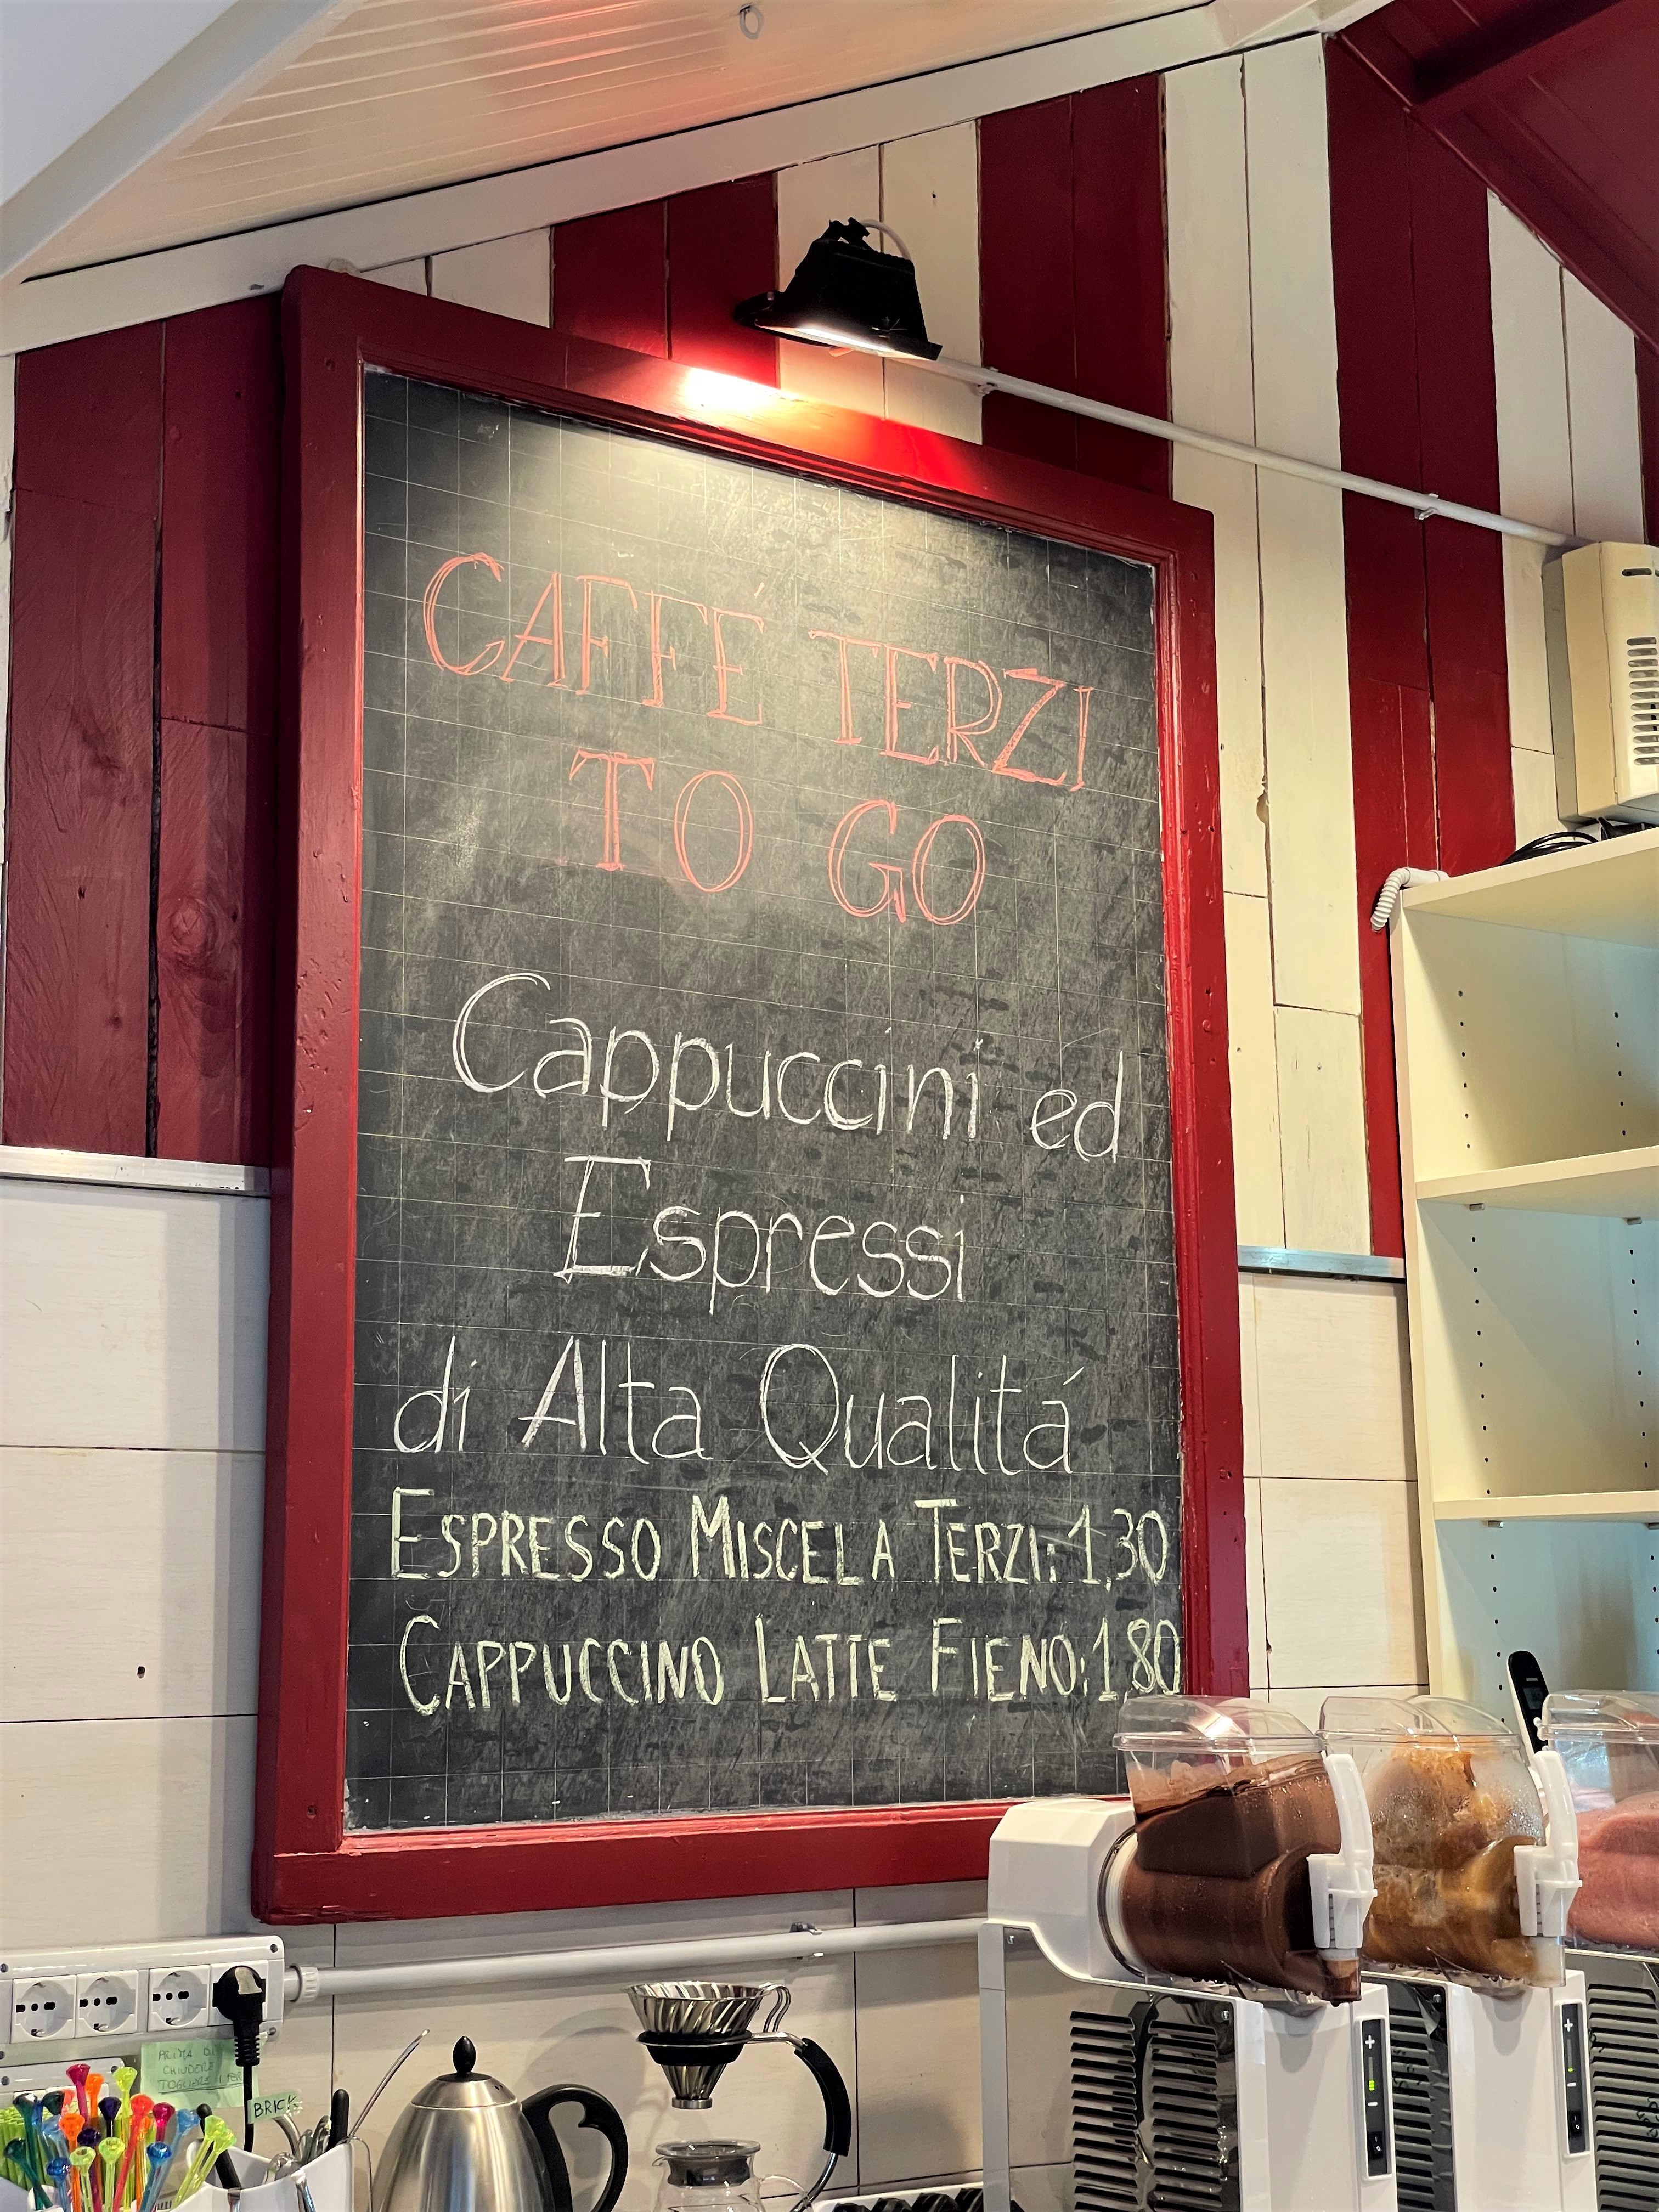 CAFFE TERZI
TO GO
Cappuccini ed
Espressi
di Alta Qualitá
ESPRESSO MISCELA TERZI: 1,30
CAPPUCCINO LATTE FIENO: 1,80
PRIMA DI
CHIUDERE
TOGLIERE I
BRICK